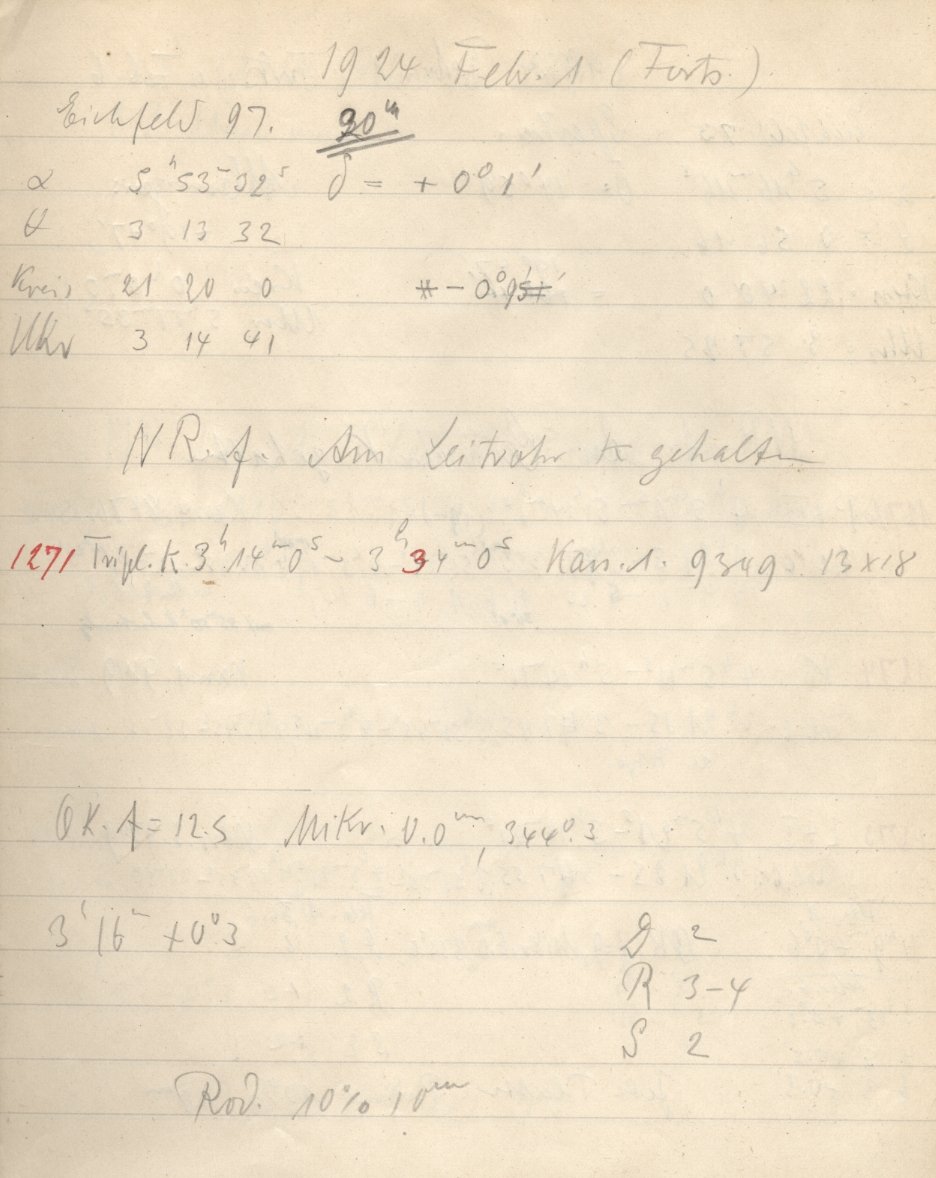 1924 Febr. 1 (Forts.)
Eichfeld 97. 20ᵐ
α 5ʰ 53ᵐ 32ˢ δ = + 0° 1'
θ 3 13 32
Kreis 21 20 0 * − 0°95'
Uhr 3 14 41
NR. f. Am Leitrohr * gehalten
1271 Tripl. K. 3ʰ 14ᵐ 0ˢ – 3ʰ 34ᵐ 0ˢ Kass. 1. 9349 13×18
OK. A = 12.5 Mikr. 0.0ᵐᵐ, 344°.3
3ʰ 16ᵐ +0°.3 D 2
R 3–4
S 2
Rod. 10% 10ᵐ